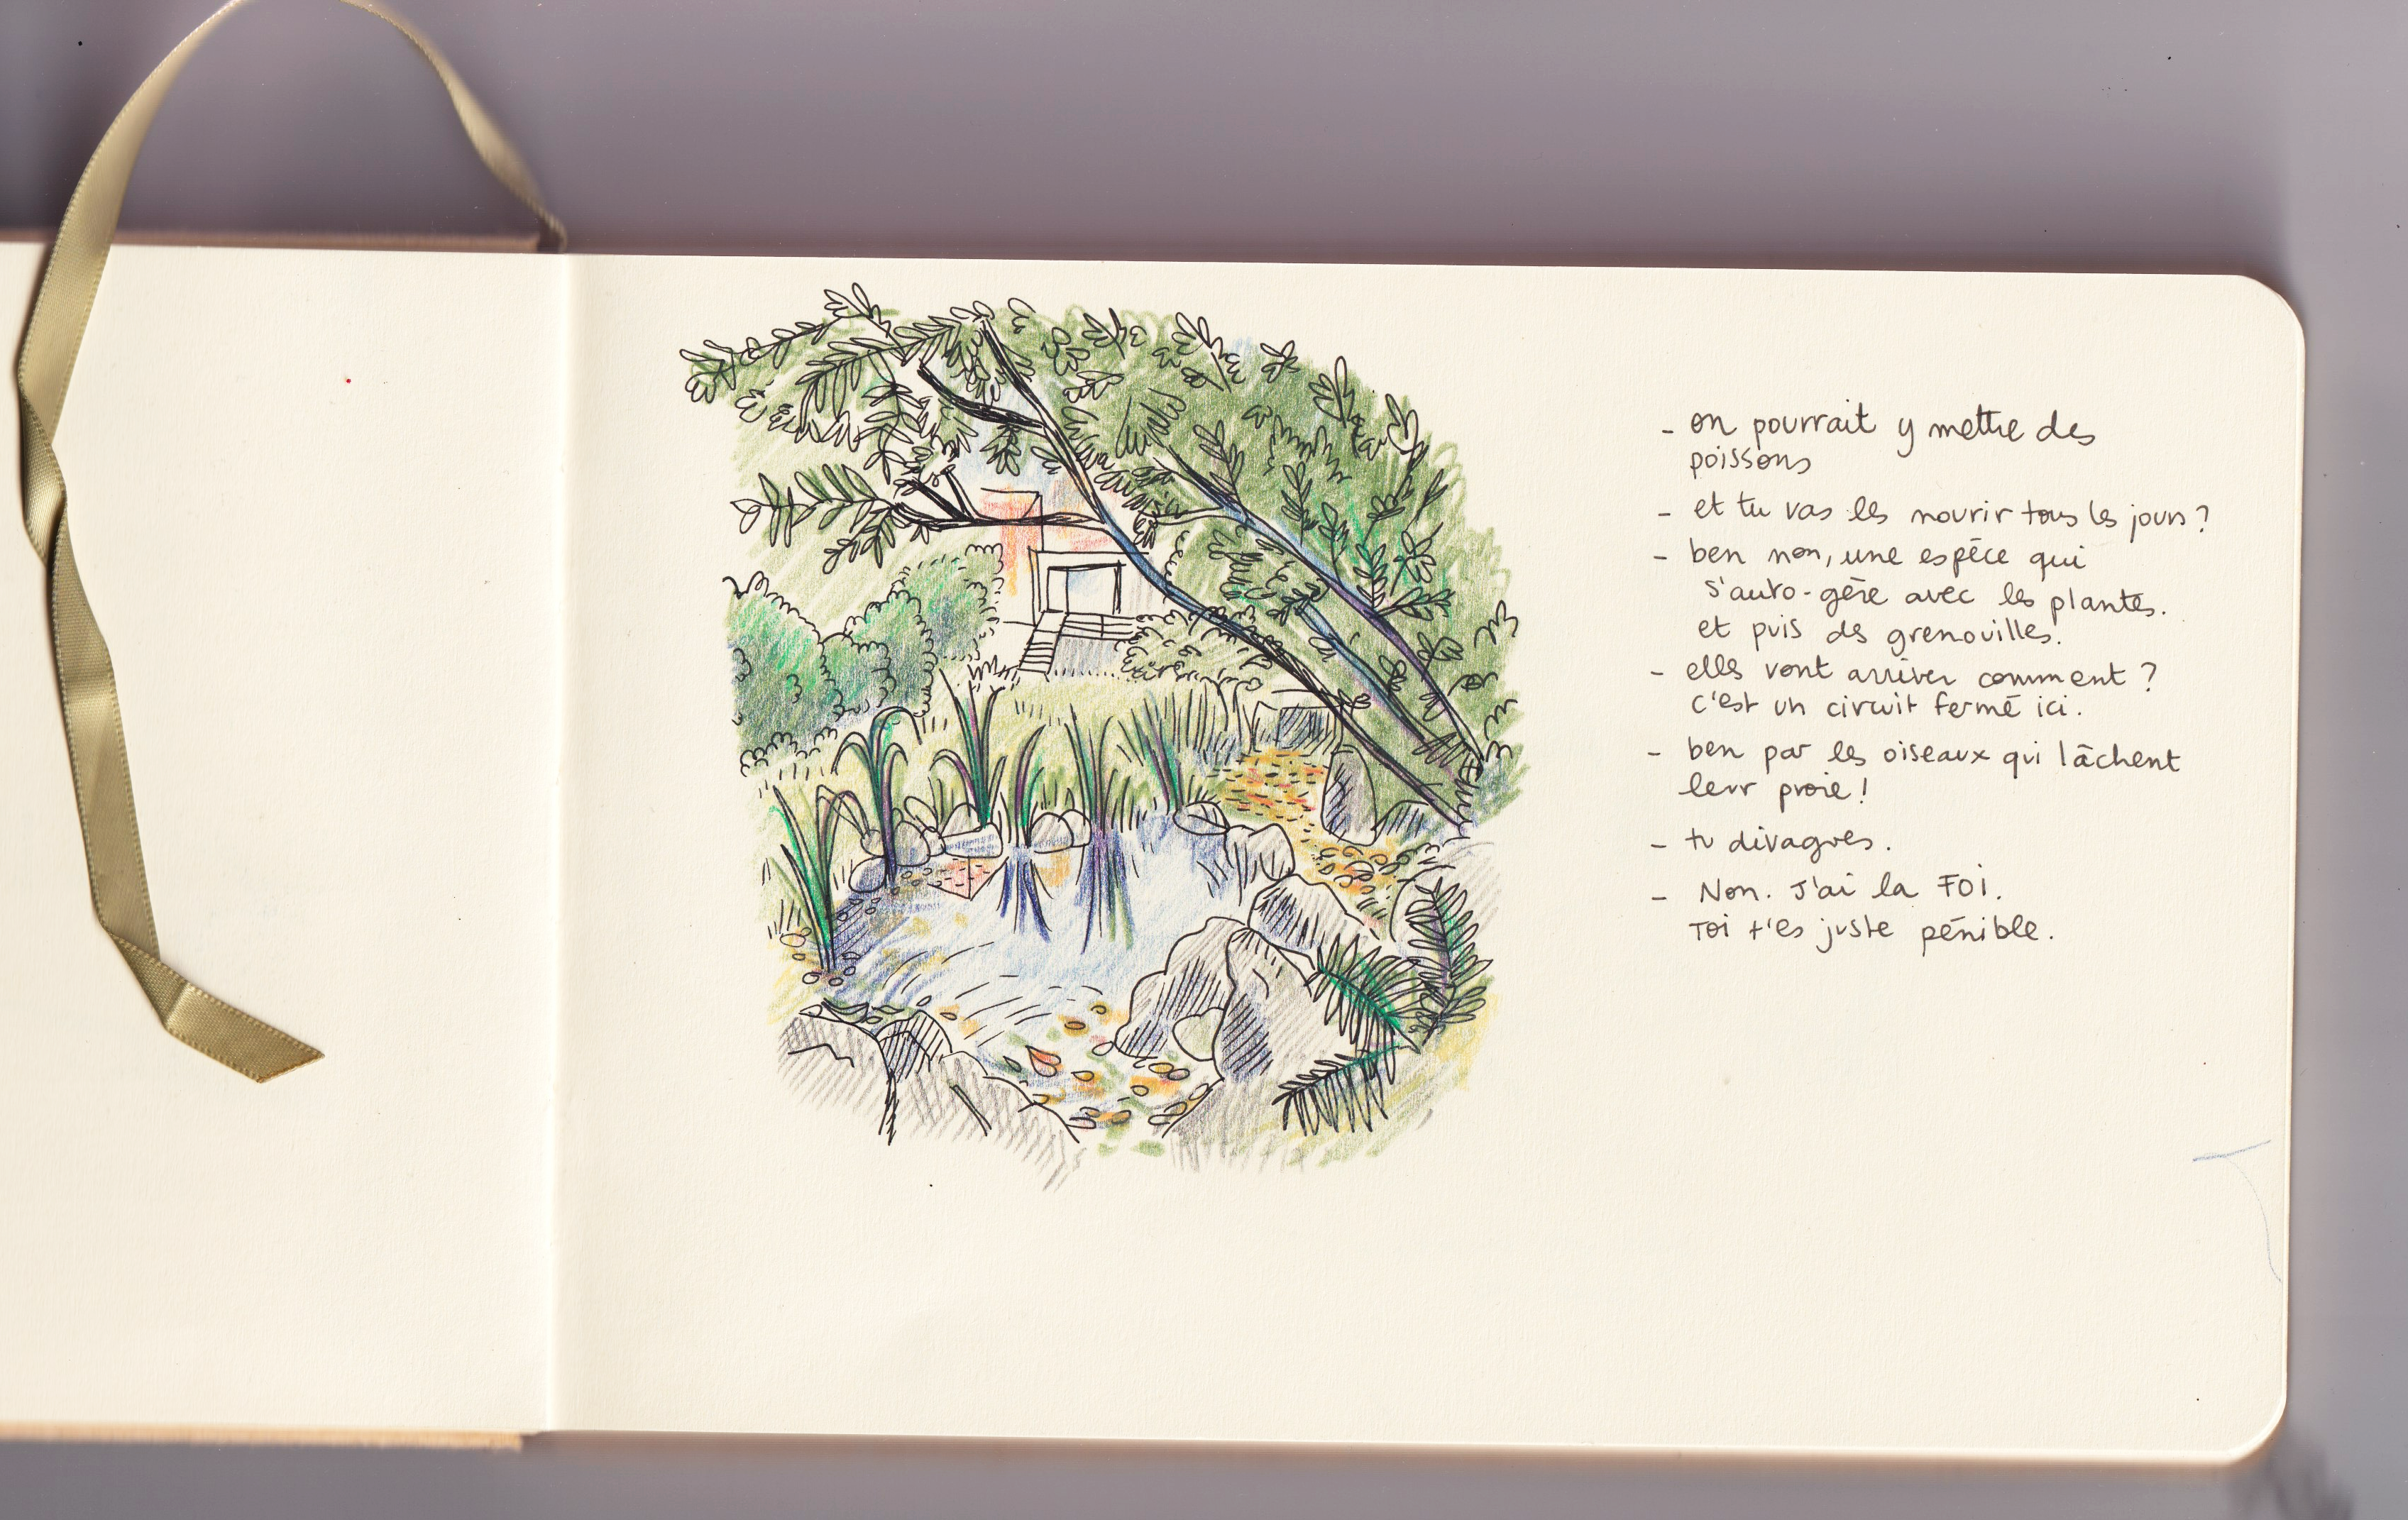 - on pourrait y mettre des
poissons
- et tu vas les nourir tous les jours ?
- ben non, une espèce qui
s'auto-gère avec les plantes.
et puis des grenouilles.
- elles vont arriver comment ?
c'est un circuit fermé ici.
- ben par les oiseaux qui lâchent
leur proie !
- tu divagues.
- Non. J'ai la FOI.
Toi t'es juste pénible.